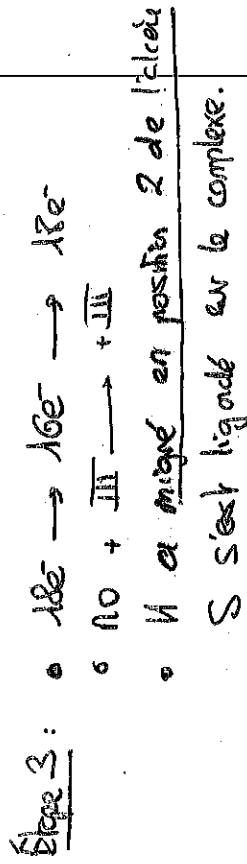 Étape 3 : • 18e⁻ → 16e⁻ → 18e⁻
• no + III → + III
• H a migré en position 2 de l'alcène
S s'est ligandé sur le complexe.